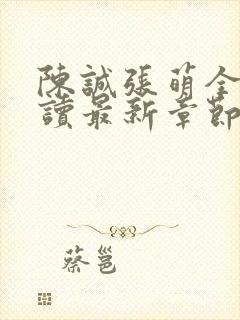 陳誠張萌全
讀最新章節
蔡邕